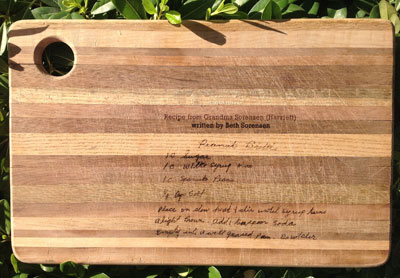 Recipe from Grandma Sorensen (Harriett)
written by Beth Sorensen
Peanut Brittle
1 C Sugar
1 C White Syrup
1 C Peanuts
Salt
Place on slow heat & stir until syrup turns
a light brown. Add 1 teaspoon Soda
Empty into a well greased Pan.